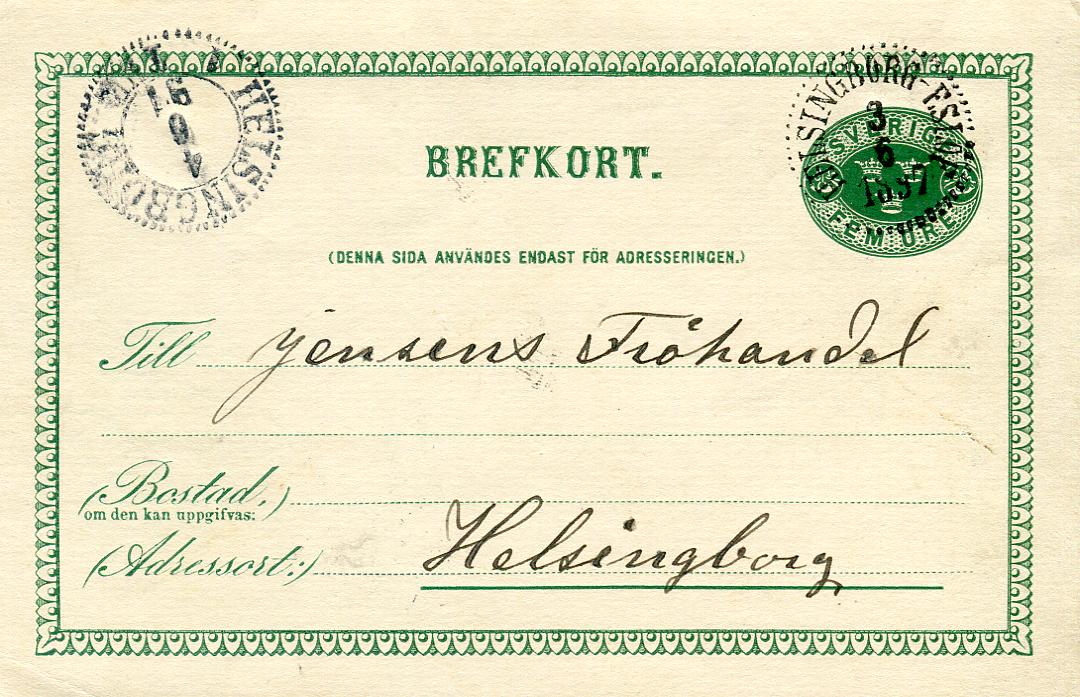 HELSINGBORG
HELSINGBORG-ESLÖF
3
6
1897
SVERIGE
FEM ÖRE
BREFKORT.
(DENNA SIDA ANVÄNDES ENDAST FÖR ADRESSERINGEN.)
Till Jensens Fröhandel
(Bostad,)
om den kan uppgifvas:
(Adressort:) Helsingborg